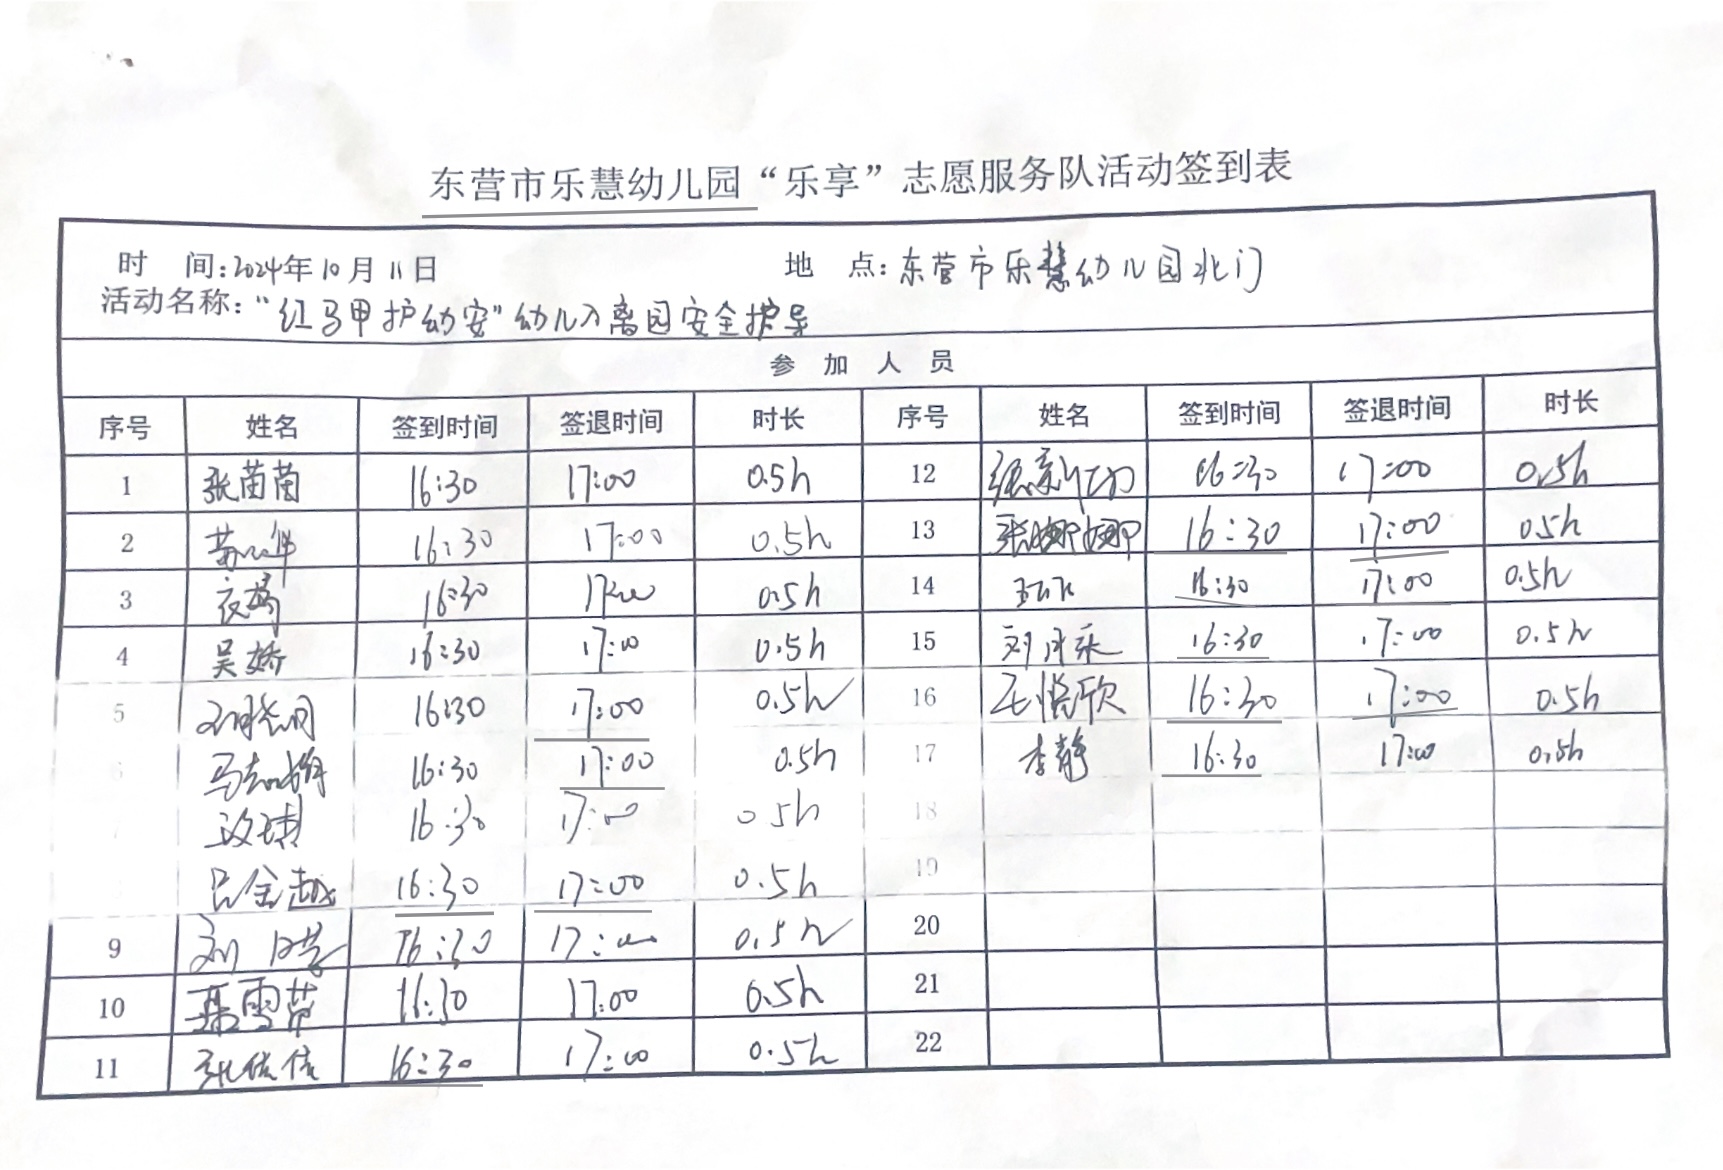 东营市乐慧幼儿园“乐享”志愿服务队活动签到表
时 间:2024年10月11日 地 点:东营市乐慧幼儿园北门
活动名称:“红马甲护幼安”幼儿入离园安全护导
参 加 人 员
序号 姓名 签到时间 签退时间 时长 序号 姓名 签到时间 签退时间 时长
1 张苗苗 16:30 17:00 0.5h 12 16:30 17:00 0.5h
2 16:30 17:00 0.5h 13 张娜娜 16:30 17:00 0.5h
3 16:30 17:00 0.5h 14 16:30 17:00 0.5h
4 吴娇 16:30 17:00 0.5h 15 刘月乐 16:30 17:00 0.5h
5 16:30 17:00 0.5h 16 王悦欣 16:30 17:00 0.5h
6 16:30 17:00 0.5h 17 李静 16:30 17:00 0.5h
7 16:30 17:00 0.5h 18
吕金越 16:30 17:00 0.5h 19
9 刘 16:30 17:00 0.5h 20
10 聂雪芹 16:30 17:00 0.5h 21
11 张依依 16:30 17:00 0.5h 22